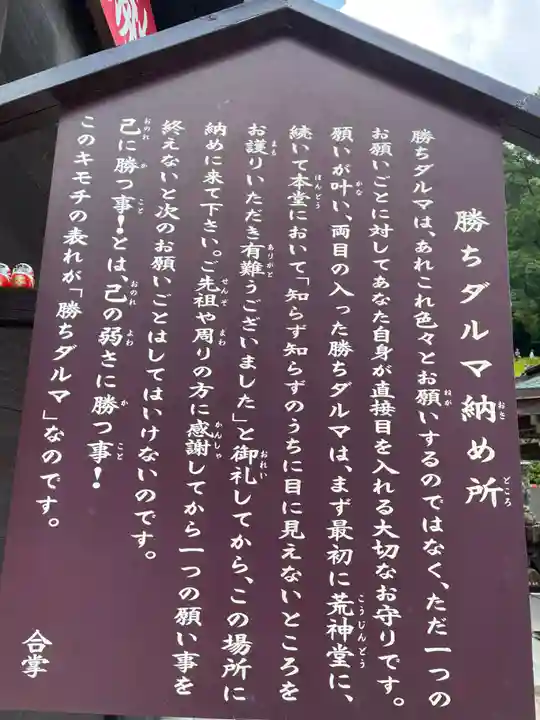 勝ちダルマ納め所
勝ちダルマは、あれこれ色々とお願いするのではなく、ただ一つの
お願いごとに対してあなた自身が直接目を入れる大切なお守りです。
願いが叶い、両目の入った勝ちダルマは、まず最初に荒神堂に、
続いて本堂において「知らず知らずのうちに目に見えないところを
お護りいただき有難うございました」と御礼してから、この場所に
納めに来て下さい。ご先祖や周りの方に感謝してから一つの願い事を
終えないと次のお願いごとはしてはいけないのです。
己に勝つ事!とは、己の弱さに勝つ事!
このキモチの表れが「勝ちダルマ」なのです。
合掌